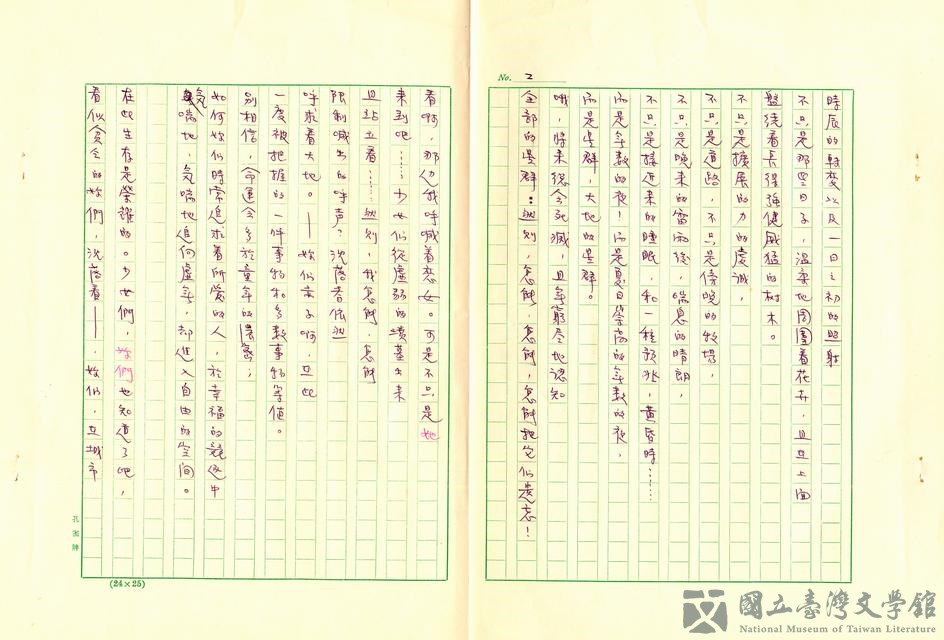 No. 2
時辰的轉变以及一日之初的照射
不只是那些日子,溫柔地周圍着花卉,且在上面
盤繞着長得強健威猛的树木。
不只是擴展的力的虔誠,
不只是道路,不只是傍晚的牧場,
不只是晚来的雷雨後,喘息的晴朗,
不只是接近来的睡眠,和一種預兆,黄昏時……
而是無数的夜!而是夏日崇高的無数的夜,
而是星群,大地的星群。
哦,將来総会死滅,且無窮尽地認知
全部的星群:然则,怎能,怎能,怎能把它们遺忘!
看啊,那边我呼喊着恋女。可是不只是她
来到吧……少女们從虛弱的墳墓出来
且站立着……然则,我怎能,怎能
限制喊出的呼声?沈落者依然
呼求着大地。——妳们亲子啊,在此
一度被把握的一件事物和多数事物等値。
别相信,命運会多於童年的濃密;
如何妳们時常追求着所爱的人,於幸福的競逐中
気喘地,気喘地追向虛無,却進入自由的空间。
在此生存是榮耀的。少女們,妳們也知道了吧,
看似貧乏的妳們,沈落着——,妳们,在城市
孔雀牌
(24×25)
國立臺灣文學館
National Museum of Taiwan Literature